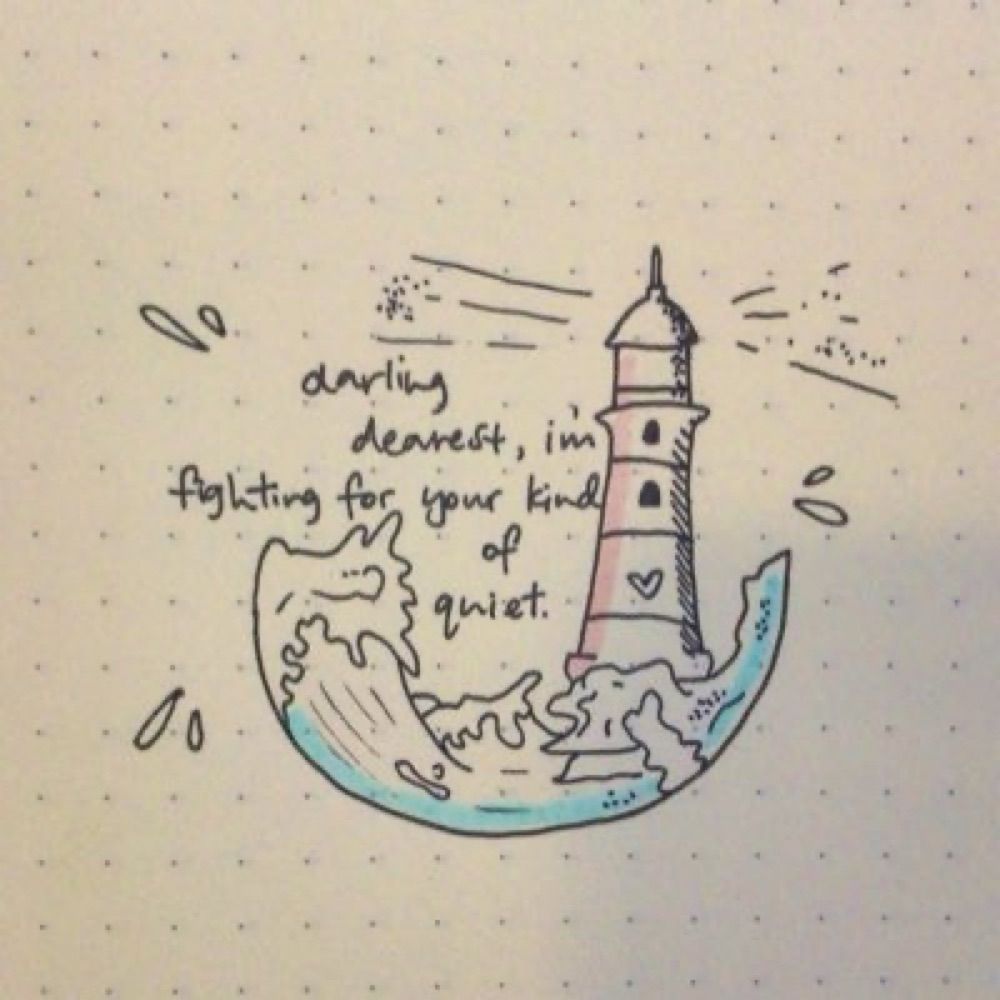 darling
dearest, i'm
fighting for your kind
of
quiet.